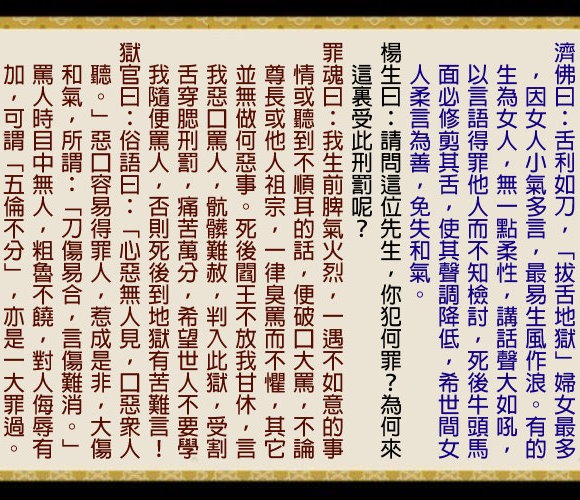 濟佛曰：舌利如刀，「拔舌地獄」婦女最多
，因女人小氣多言，最易生風作浪。有的
生為女人，無一點柔性，講話聲大如吼，
以言語得罪他人而不知檢討，死後牛頭馬
面必修剪其舌，使其聲調降低，希世間女
人柔言為善，免失和氣。
楊生曰：請問這位先生，你犯何罪？為何來
這裏受此刑罰呢？
罪魂曰：我生前脾氣火烈，一遇不如意的事
情或聽到不順耳的話，便破口大罵，不論
尊長或他人祖宗，一律臭罵而不懼，其它
並無做何惡事。死後閻王不放我甘休，言
我惡口罵人，骯髒難赦，判入此獄，受割
舌穿腮刑罰，痛苦萬分，希望世人不要學
我隨便罵人，否則死後到地獄有苦難言！
獄官曰：俗語曰：「心惡無人見，口惡衆人
聽。」惡口容易得罪人，惹成是非，大傷
和氣，所謂：「刀傷易合，言傷難消。」
罵人時目中無人，粗魯不饒，對人侮辱有
加，可謂「五倫不分」，亦是一大罪過。